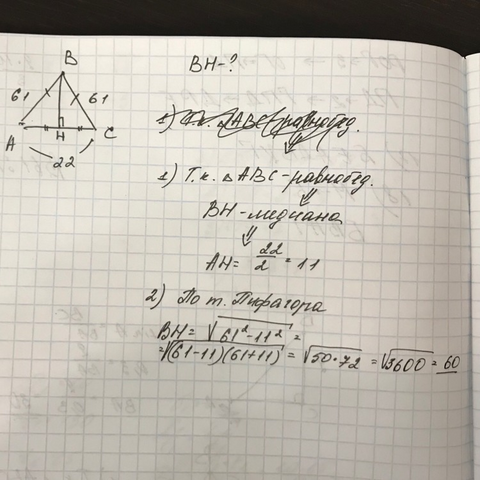 BH-?
B
61 61
A H C
22
1) Т.к. △ABC-равнобед.
1) Т.к. △ABC-равнобед.
BH-медиана
AH= 22/2 = 11
2) По т. Пифагора
BH= √(61²-11²) =
=√((61-11)(61+11)) = √(50·72) = √3600 = 60